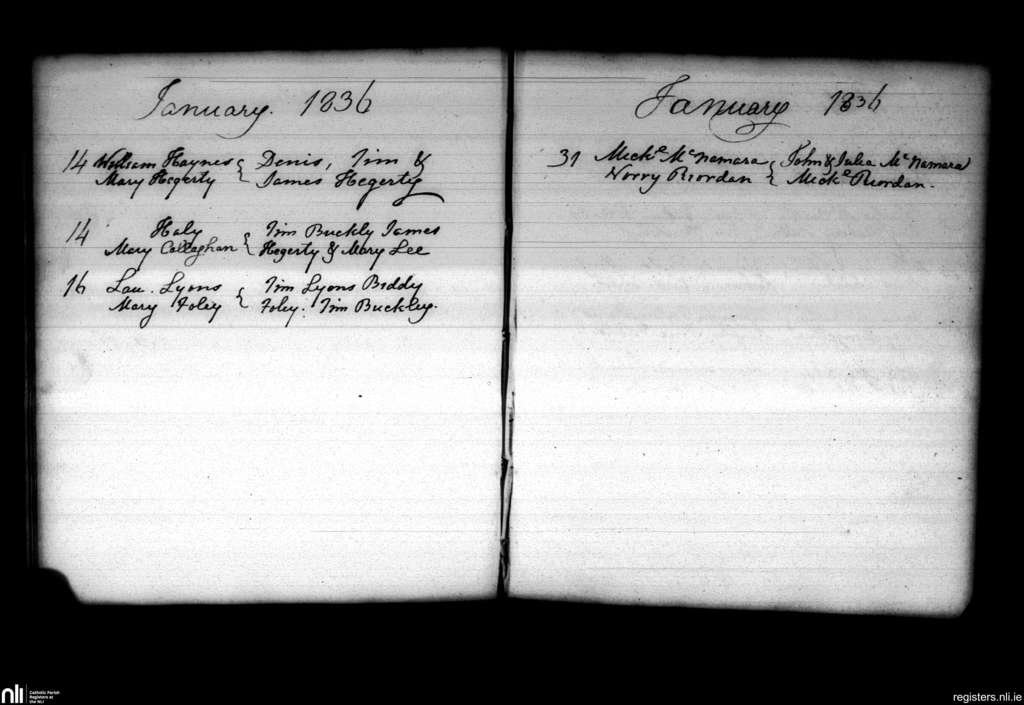 January. 1836
14 William Haynes { Denis, Tim &
Mary Hegerty { James Hegerty
14 Haly { Tim Buckly James
Mary Callaghan { Hegerty & Mary Lee
16 Lau. Lyons { Tim Lyons Biddy
Mary Foley { Foley. Tim Buckley.
January 1836
31 Mick.l McNamara { John & Julia McNamara
Norry Riordan { Mick.l Riordan.
nli Catholic Parish
Registers at
the NLI
registers.nli.ie